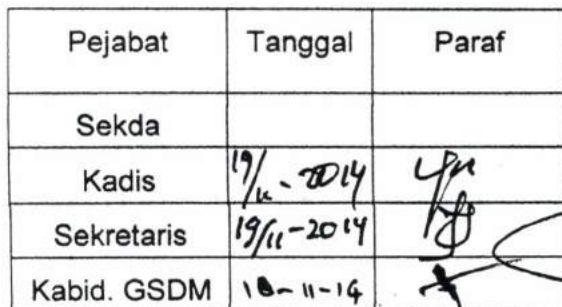 Pejabat Tanggal Paraf
Sekda
Kadis 19/11-2014
Sekretaris 19/11-2014
Kabid. GSDM